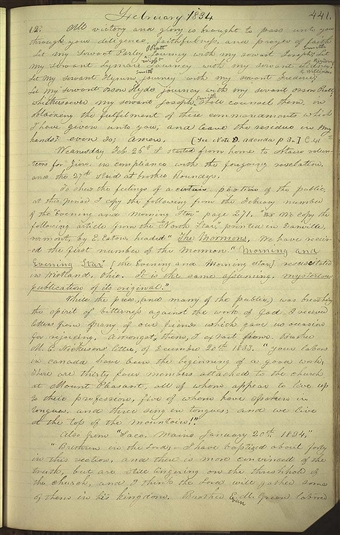 February 1834 441.
12. All victory and glory is brought to pass unto you
through your diligence, faithfulness, and prayers of faith
Let my servant Parley Pratt Journey with my servant Joseph Smith
my servant Lyman Wight Journey with my servant Sidney
Let my servant Hyrum Smith Journey with my servant Frederick G. Williams
Let my servant Orson Hyde Journey with my servant Orson Pratt
my servant Joseph Smith counsel them in
obtaining the fulfilment of these commandments which
I have given unto you, and leave the residue in my
hands: even so; Amen.
Wednesday Feb 26th I started from home to obtain volun-
teers for Zion in compliance with the foregoing revelation
and the 27th staid at brother Roundys.
To show the feelings of a certain portion of the public
at this period I copy the following from the February number
of the "Evening and Morning Star" page 271. "We copy the
following article from the North Star, printed in Danville
mont, by E. Eaton headed "The Mormons, We have receiv-
ed the first number of the Mormon "Morning and
Evening Star" (the Evening and Morning Star) resuscitated
in Kirtland, Ohio. It is the same in mysterious
publication of its original."
While the press, and many of the public, was breathing
the spirit of bitterness against the work of God, I received
letters from many of our friends which gave us occasion
for rejoicing, Amongst them, I extract from brother
M. C. Nickerson's letter, of December 20th 1833. "your labors
in canada have been the beginning of a good work,
there are thirty four members attached to the church
at Mount Pleasant, all of whom appear to live up
to their profession, five of whom have spoken in
tongues, and three sing in tongues: and we live
at the top of the mountain!"
Also from "Saco, Maine January 20th 1834,"
"Brethren in the Lord, I have baptised about forty
in this section, and there is more convinced of the
truth, but are still lingering on the threshold of
the church, and I think the Lord will gather some
of them in his kingdom. Brother E. M. Green labored